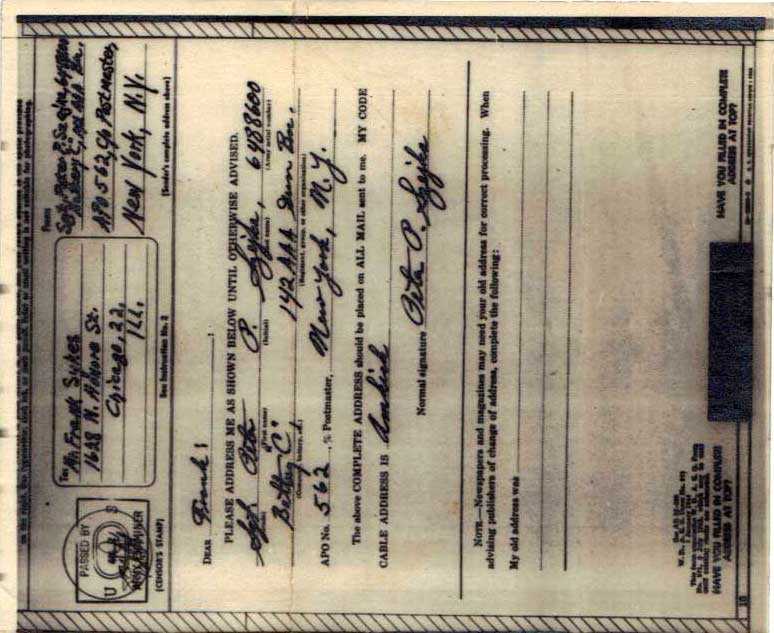 PASSED BY
U S
ARMY EXAMINER
(CENSOR'S STAMP)
To: Mr. Frank Sykes
1628 N. St.
Chicago, 22,
Ill.
See Instruction No. 2
From
Sgt. Peter P.
APO 562, c/o Postmaster,
New York, N.Y.
(Sender's complete address above)
DEAR Frank :
PLEASE ADDRESS ME AS SHOWN BELOW UNTIL OTHERWISE ADVISED.
Sgt. Peter P. 6988600
(First name) (Initial) (Last name) (Army serial number)
Battery "C" 142 AAA Gun Bn.
(Company, battery, etc.) (Regiment, group, or other organization)
APO No. 562, % Postmaster, New York, N.Y.
The above COMPLETE ADDRESS should be placed on ALL MAIL sent to me. MY CODE
CABLE ADDRESS IS
Normal signature Peter P.
NOTE.—Newspapers and magazines may need your old address for correct processing. When
advising publishers of change of address, complete the following:
My old address was
HAVE YOU FILLED IN COMPLETE
ADDRESS AT TOP?
HAVE YOU FILLED IN COMPLETE
ADDRESS AT TOP?